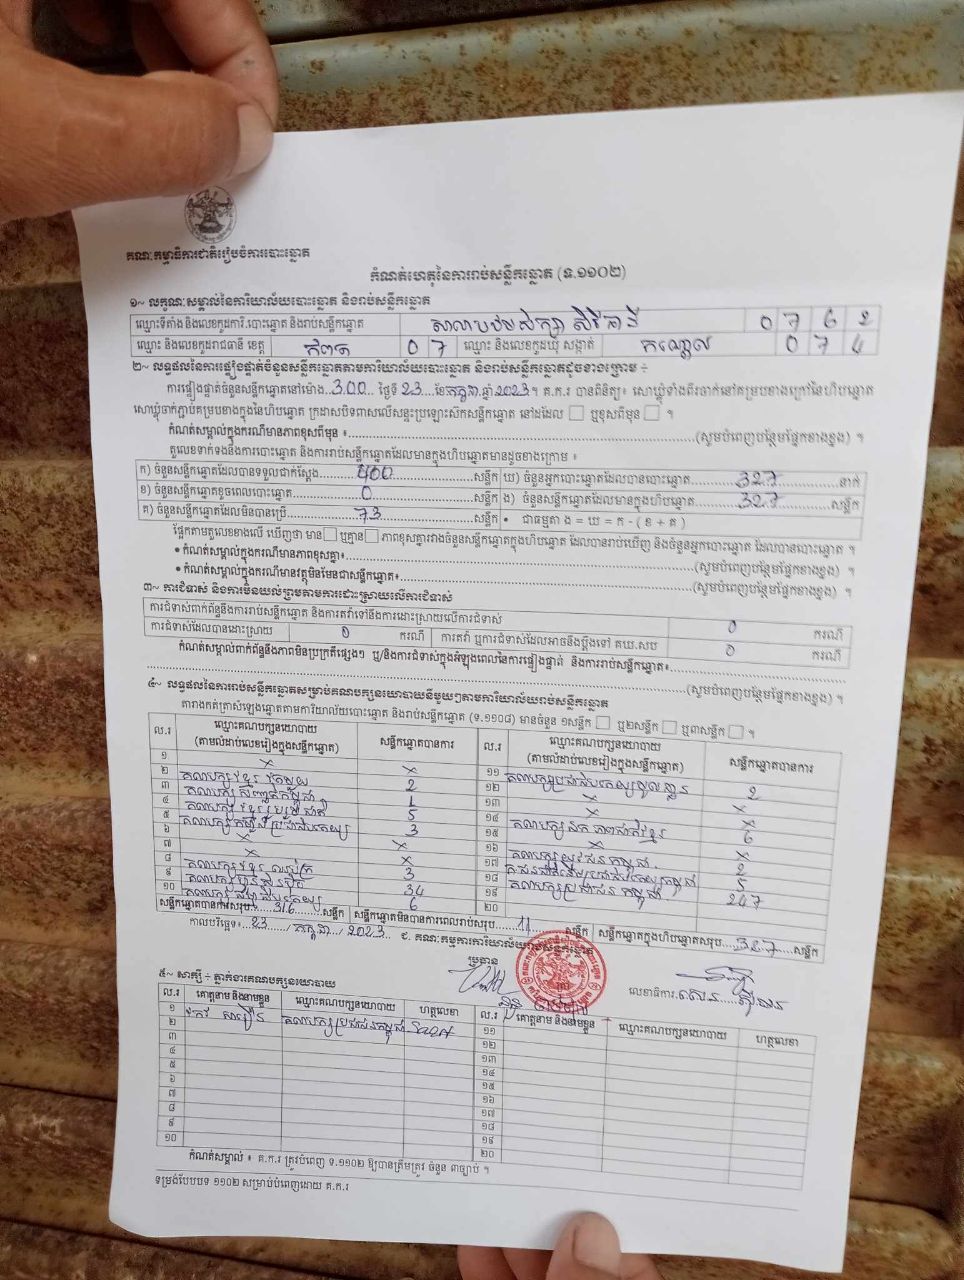 គណៈកម្មាធិការជាតិរៀបចំការបោះឆ្នោត
កំណត់ហេតុនៃការរាប់សន្លឹកឆ្នោត (ទ.១១០២)
១~ លក្ខណៈសម្គាល់នៃការិយាល័យបោះឆ្នោត និងរាប់សន្លឹកឆ្នោត
ឈ្មោះទីតាំង និងលេខកូដការិ.បោះឆ្នោត និងរាប់សន្លឹកឆ្នោត សាលាបឋមសិក្សា 0 7 6 2
ឈ្មោះ និងលេខកូដរាជធានី ខេត្ត កំពត 0 7 ឈ្មោះ និងលេខកូដឃុំ សង្កាត់ 0 7 4
២~ លទ្ធផលនៃការផ្ទៀងផ្ទាត់ចំនួនសន្លឹកឆ្នោតតាមការិយាល័យបោះឆ្នោត និងរាប់សន្លឹកឆ្នោតដូចខាងក្រោម ÷
ការផ្ទៀងផ្ទាត់ចំនួនសន្លឹកឆ្នោតនៅម៉ោង..3.00.. ថ្ងៃទី 23 ....ខែកក្កដា.ឆ្នាំ 2023។ គ.ក.រ បានពិនិត្យ៖ សោឃ្លុំទាំងពីរចាក់នៅគម្របខាងក្រៅនៃហិបឆ្នោត
សោឃ្លុំចាក់ភ្ជាប់គម្របខាងក្នុងនៃហិបឆ្នោត ក្រដាសបិទពាសលើសន្ទះប្រឡោះស៊កសន្លឹកឆ្នោត នៅដដែល ឬខុសពីមុន ។
កំណត់សម្គាល់ក្នុងករណីមានភាពខុសពីមុន ៖ (សូមបំពេញបន្ថែមផ្នែកខាងខ្នង) ។
តួលេខទាក់ទងនឹងការបោះឆ្នោត និងការរាប់សន្លឹកឆ្នោតដែលមានក្នុងហិបឆ្នោតមានដូចខាងក្រោម ៖
ក) ចំនួនសន្លឹកឆ្នោតដែលបានទទួលជាក់ស្តែង 400 សន្លឹក ឃ) ចំនួនអ្នកបោះឆ្នោតដែលបានបោះឆ្នោត 327 នាក់
ខ) ចំនួនសន្លឹកឆ្នោតខូចពេលបោះឆ្នោត 0 សន្លឹក ង) ចំនួនសន្លឹកឆ្នោតដែលមានក្នុងហិបឆ្នោត 327 សន្លឹក
គ) ចំនួនសន្លឹកឆ្នោតដែលមិនបានប្រើ 73 សន្លឹក • ជាធម្មតា ង = ឃ = ក - ( ខ + គ )
ផ្អែកតាមតួលេខខាងលើ ឃើញថា មាន ឬគ្មាន ភាពខុសគ្នារវាងចំនួនសន្លឹកឆ្នោតក្នុងហិបឆ្នោត ដែលបានរាប់ឃើញ និងចំនួនអ្នកបោះឆ្នោត ដែលបានបោះឆ្នោត ។
• កំណត់សម្គាល់ក្នុងករណីមានភាពខុសគ្នា៖ (សូមបំពេញបន្ថែមផ្នែកខាងខ្នង) ។
• កំណត់សម្គាល់ក្នុងករណីមានវត្ថុមិនមែនជាសន្លឹកឆ្នោត៖ (សូមបំពេញបន្ថែមផ្នែកខាងខ្នង) ។
៣~ ការជំទាស់ និងការមិនយល់ព្រមតាមការដោះស្រាយលើការជំទាស់
ការជំទាស់ពាក់ព័ន្ធនឹងការរាប់សន្លឹកឆ្នោត និងការតវ៉ាទៅនឹងការដោះស្រាយលើការជំទាស់ 0 ករណី
ការជំទាស់ដែលបានដោះស្រាយ 0 ករណី ការតវ៉ា ឬការជំទាស់ដែលអាចនឹងប្តឹងទៅ គឃ.សប 0 ករណី
កំណត់សម្គាល់ពាក់ព័ន្ធនឹងភាពមិនប្រក្រតីផ្សេងៗ ឬ/និងការជំទាស់ក្នុងអំឡុងពេលនៃការផ្ទៀងផ្ទាត់ និងការរាប់សន្លឹកឆ្នោត៖
(សូមបំពេញបន្ថែមផ្នែកខាងខ្នង) ។
៤~ លទ្ធផលនៃការរាប់សន្លឹកឆ្នោតសម្រាប់គណបក្សនយោបាយនីមួយៗតាមការិយាល័យរាប់សន្លឹកឆ្នោត
តារាងកត់ត្រាសំឡេងឆ្នោតតាមការិយាល័យបោះឆ្នោត និងរាប់សន្លឹកឆ្នោត (ទ.១១០៨) មានចំនួន ១សន្លឹក ឬ២សន្លឹក ឬ៣សន្លឹក ។
ល.រ ឈ្មោះគណបក្សនយោបាយ សន្លឹកឆ្នោតបានការ ល.រ ឈ្មោះគណបក្សនយោបាយ សន្លឹកឆ្នោតបានការ
(តាមលំដាប់លេខរៀងក្នុងសន្លឹកឆ្នោត) (តាមលំដាប់លេខរៀងក្នុងសន្លឹកឆ្នោត)
១ x x ១១ គណបក្សប្រជាធិបតេយ្យមូលដ្ឋាន 2
២ គណបក្សខ្មែរតែមួយ 2 ១២ x x
៣ 1 ១៣ x x
៤ គណបក្សខ្មែររួបរួមជាតិ 5 ១៤ គណបក្សឯកភាពជាតិខ្មែរ 6
៥ គណបក្សកម្ពុជា 3 ១៥ x x
៦ x x ១៦ គណបក្សយុវជនកម្ពុជា 2
៧ x x ១៧ 5
៨ គណបក្សខ្មែរ 3 ១៨ គណបក្សប្រជាជនកម្ពុជា 247
៩ គណបក្សហ៊្វុនស៊ិនប៉ិច 34 ១៩
១០ 6 ២០
សន្លឹកឆ្នោតបានការសរុប 316 សន្លឹក សន្លឹកឆ្នោតមិនបានការពេលរាប់សរុប 11 សន្លឹក សន្លឹកឆ្នោតក្នុងហិបឆ្នោតសរុប 327 សន្លឹក
កាលបរិច្ឆេទ៖ 23 / កក្កដា / 2023 ជ. គណៈកម្មការការិយាល័យរាប់សន្លឹកឆ្នោត
ប្រធាន
លេខាធិការ
៥~ សាក្សី ÷ ភ្នាក់ងារគណបក្សនយោបាយ
ល.រ គោត្តនាម និងនាមខ្លួន ឈ្មោះគណបក្សនយោបាយ ហត្ថលេខា ល.រ គោត្តនាម និងនាមខ្លួន ឈ្មោះគណបក្សនយោបាយ ហត្ថលេខា
១ គណបក្សប្រជាជនកម្ពុជា ១១
២ ១២
៣ ១៣
៤ ១៤
៥ ១៥
៦ ១៦
៧ ១៧
៨ ១៨
៩ ១៩
១០ ២០
កំណត់សម្គាល់ ៖ គ.ក.រ ត្រូវបំពេញ ទ.១១០២ ឱ្យបានត្រឹមត្រូវ ចំនួន ៣ច្បាប់ ។
ទម្រង់បែបបទ ១១០២ សម្រាប់បំពេញដោយ គ.ក.រ